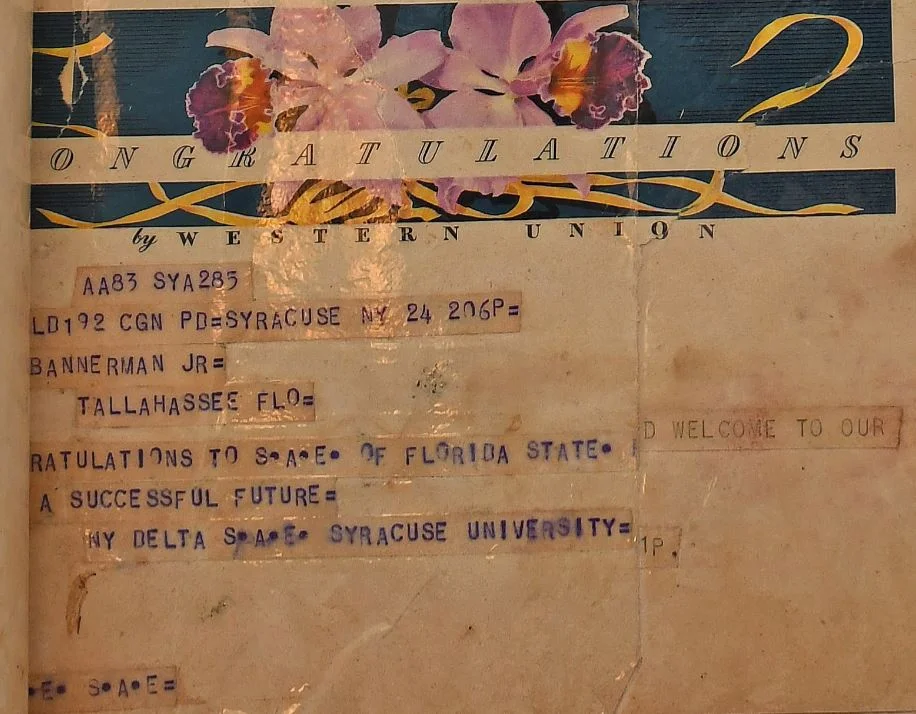 ONGRATULATIONS
by WESTERN UNION
AA83 SYA285
LD192 CGN PD=SYRACUSE NY 24 206P=
BANNERMAN JR=
TALLAHASSEE FLO=
D WELCOME TO OUR
RATULATIONS TO S•A•E• OF FLORIDA STATE•
A SUCCESSFUL FUTURE=
NY DELTA S•A•E• SYRACUSE UNIVERSITY=
1P.
•E• S•A•E=